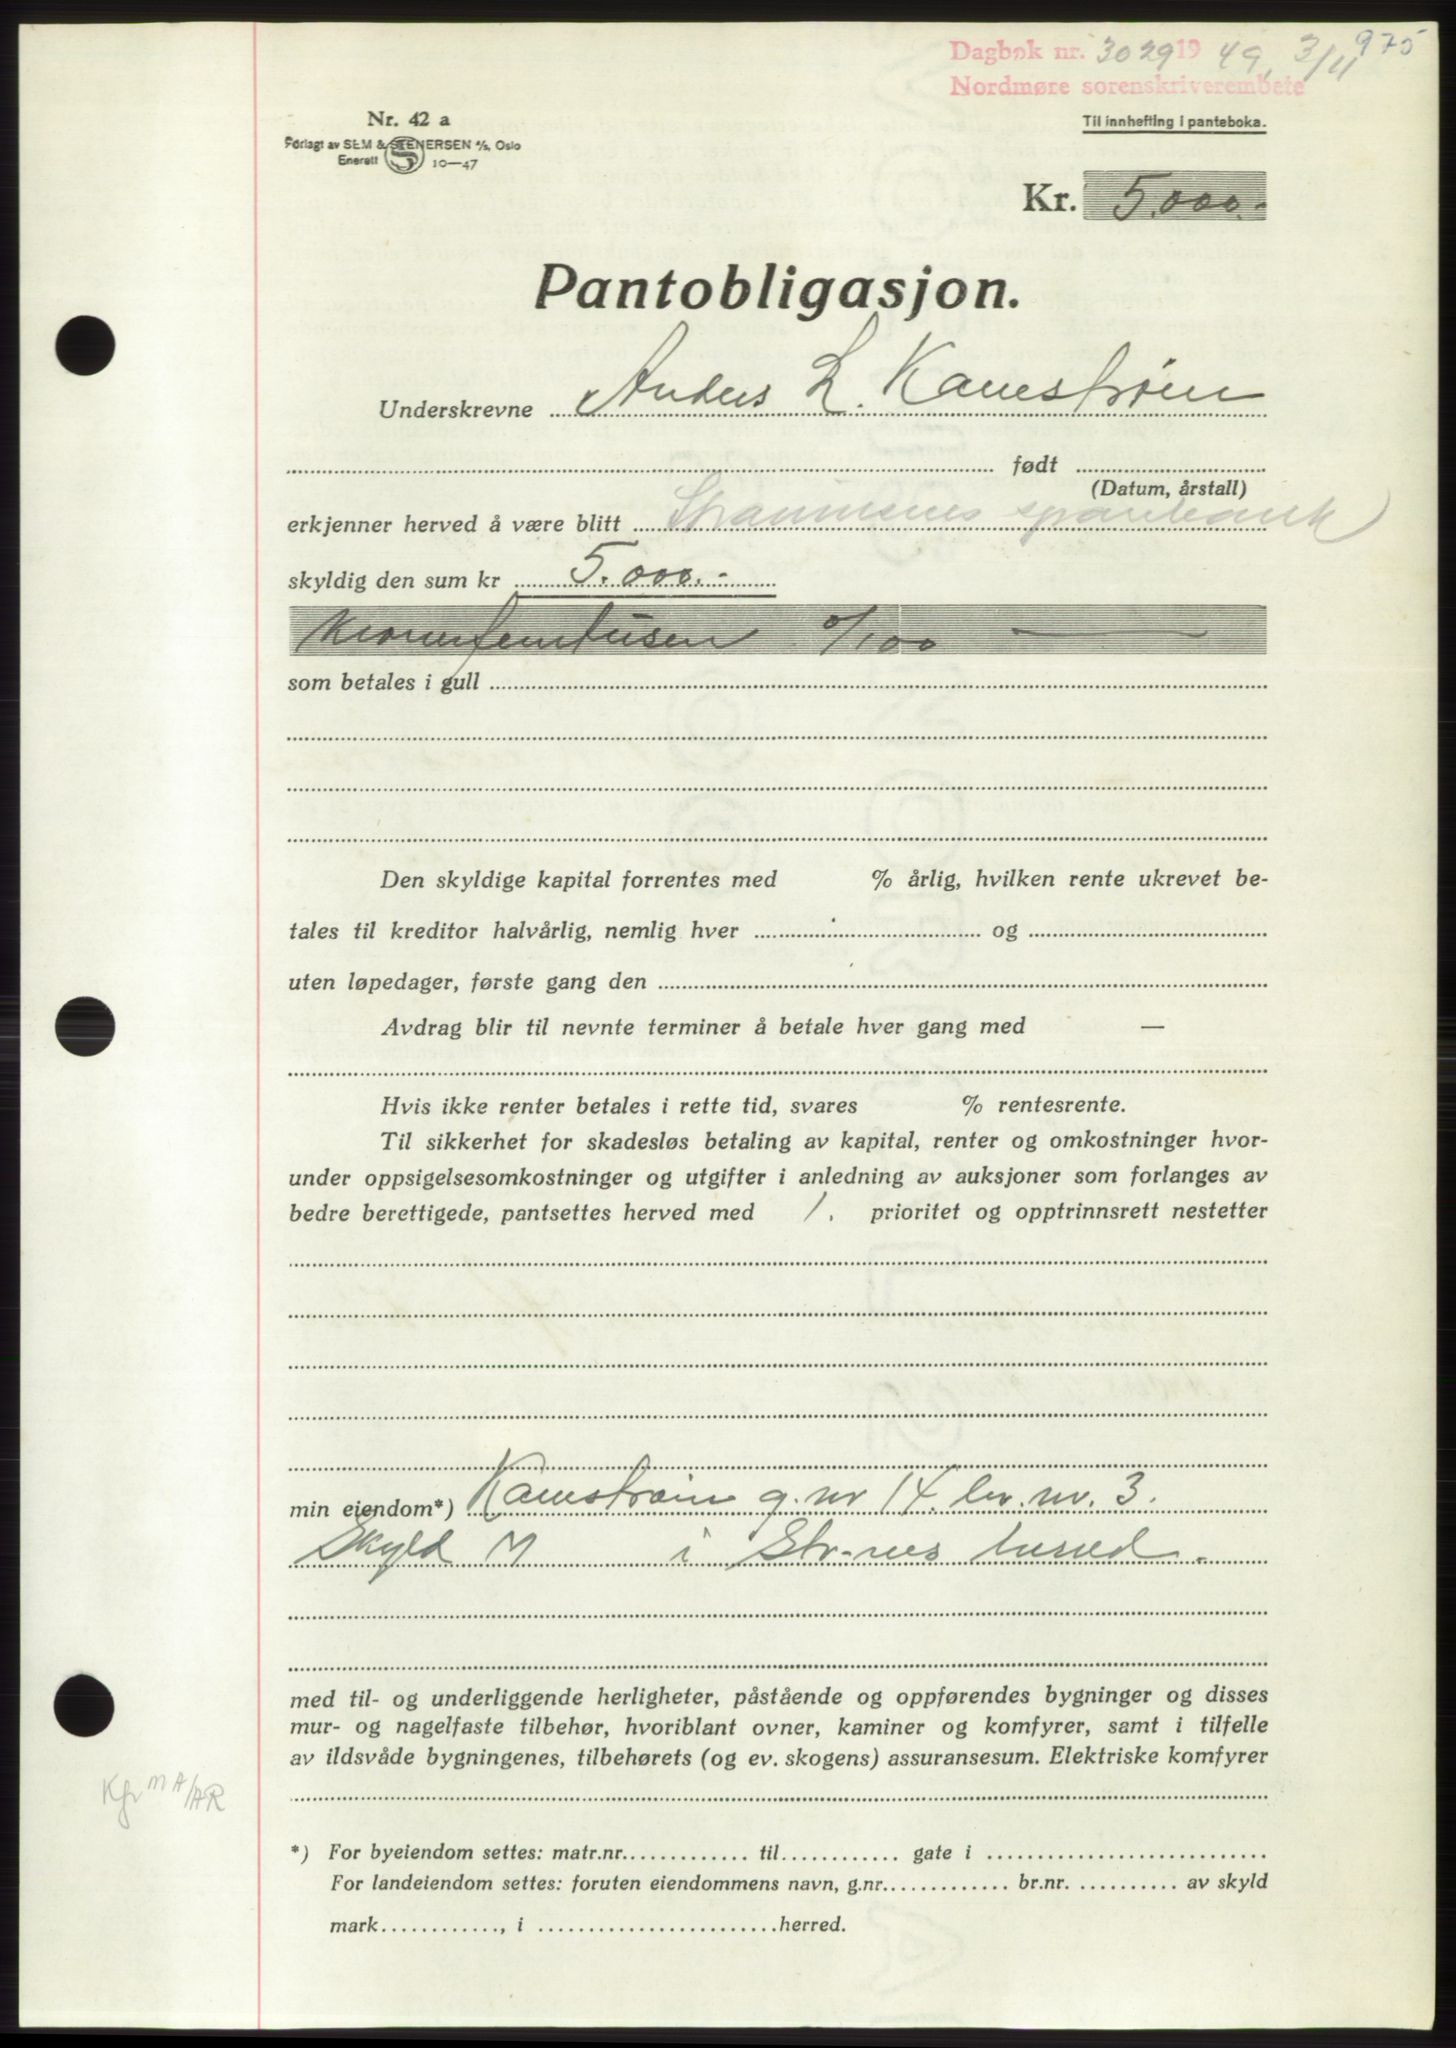 975
Dagbok nr. 3029 19 49, 3/11
Nordmøre sorenskriverembete
Nr. 42 a
Forlagt av SEM & STENERSEN A/S, Oslo
Enerett 10—47
Til innhefting i panteboka.
Kr. 5.000.-
Pantobligasjon.
Underskrevne Anders L. Kanestrøm
født
(Datum, årstall)
erkjenner herved å være blitt Straumsnes sparebank
skyldig den sum kr 5.000.-
Kronerfemtusen 0/100 —
som betales i gull
Den skyldige kapital forrentes med % årlig, hvilken rente ukrevet be-
tales til kreditor halvårlig, nemlig hver og
uten løpedager, første gang den
Avdrag blir til nevnte terminer å betale hver gang med —
Hvis ikke renter betales i rette tid, svares % rentesrente.
Til sikkerhet for skadesløs betaling av kapital, renter og omkostninger hvor-
under oppsigelsesomkostninger og utgifter i anledning av auksjoner som forlanges av
bedre berettigede, pantsettes herved med 1. prioritet og opptrinnsrett nestetter
min eiendom*) Kanestrøm g.nr 14. br.nr. 3.
Skyld M i Str-nes herred.
med til- og underliggende herligheter, påstående og oppførendes bygninger og disses
mur- og nagelfaste tilbehør, hvoriblant ovner, kaminer og komfyrer, samt i tilfelle
av ildsvåde bygningenes, tilbehørets (og ev. skogens) assuransesum. Elektriske komfyrer
*) For byeiendom settes: matr.nr. til gate i
For landeiendom settes: foruten eiendommens navn, g.nr. br.nr. av skyld
mark , i herred.